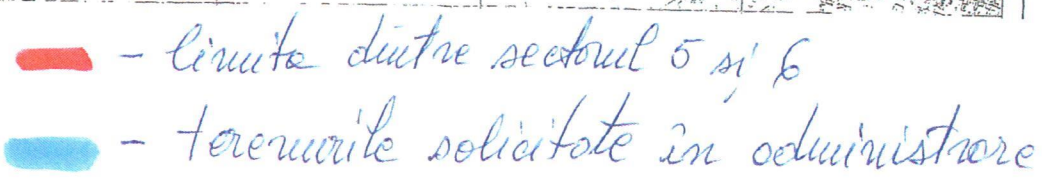 - limita dintre sectorul 5 și 6
- terenurile solicitate în administrare